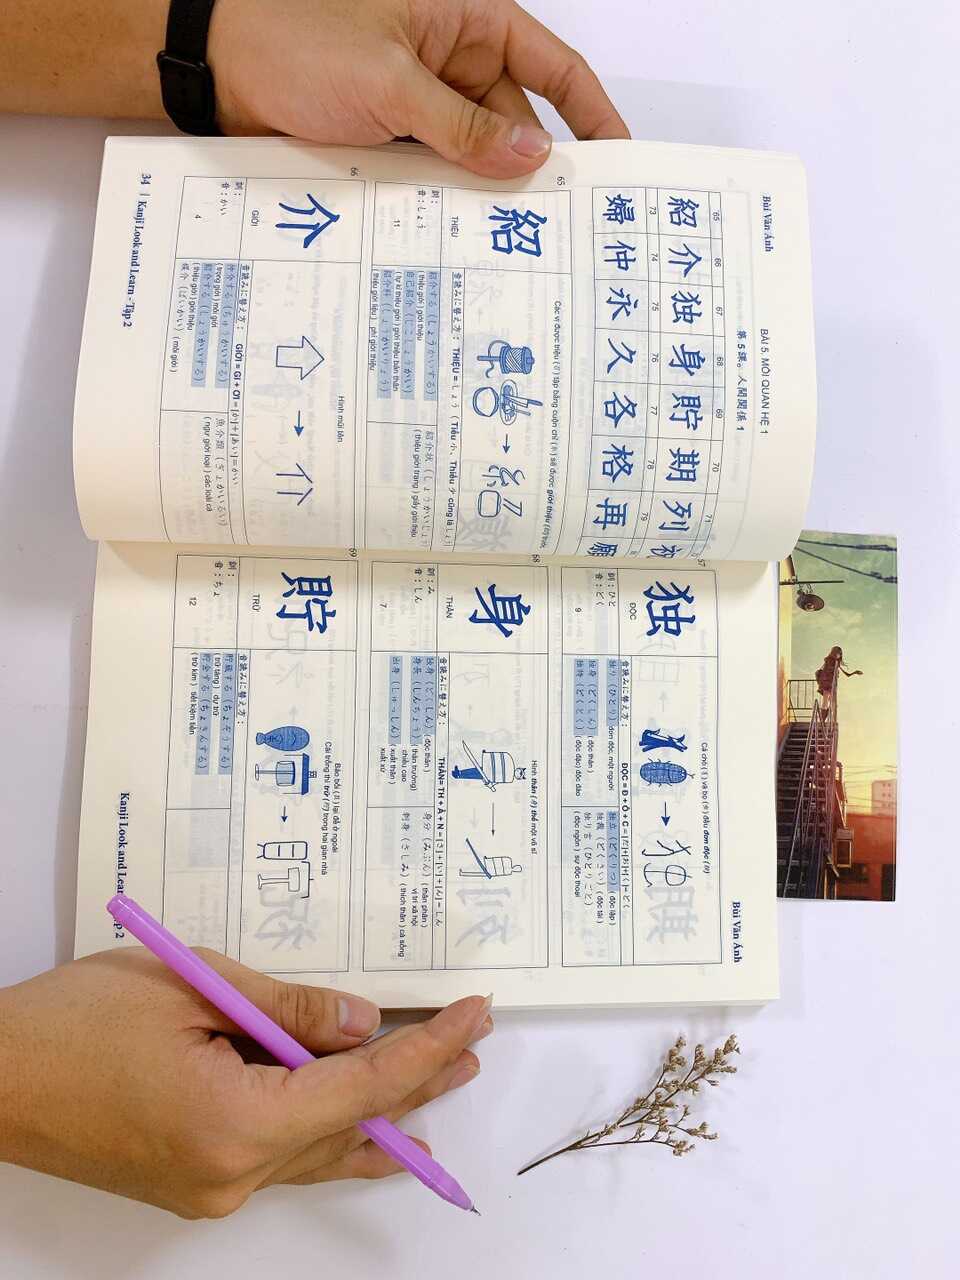 Bùi Văn Ánh
BÀI 5. MỐI QUAN HỆ 1
第5課。人間関係 1
65 66 67 68 69 70 71
紹 介 独 身 貯 期 列 祝
73 74 75 76 77 78 79
婦 仲 永 久 各 格 再 願
65
紹
THIỆU
訓：
音：しょう
11
Các vị được triệu (召) tập bằng cuộn chỉ (糸) sẽ được giới thiệu (紹) trước
音読みに替え方： THIỆU = しょう ( Tiểu 小、Thiếu 少 cũng là しょう)
紹介する（しょうかいする）
( thiệu giới ) giới thiệu
自己紹介（じこしょうかい）
( tự kỉ thiệu giới ) giới thiệu bản thân
紹介料（しょうかいりょう）
( thiệu giới liệu ) phí giới thiệu
紹介状（しょうかいじょう）
( thiệu giới trạng ) giấy giới thiệu
66
介
GIỚI
訓：
音：かい
4
Hình mũi tên
音読みに替え方： GIỚI = GI + ƠI = [か] + [あい] = かい
仲介する（ちゅうかいする）
( trọng giới ) môi giới
紹介する（しょうかいする）
( thiệu giới ) giới thiệu
媒介（ばいかい）( môi giới )
魚介類（ぎょかいるい）
( ngư giới loại ) các loài cá
34 | Kanji Look and Learn - Tập 2
Bùi Văn Ánh
67
独
ĐỘC
訓：ひと
音：どく
9
Cả chó (犭) và bọ (虫) đều đơn độc (独)
音読みに替え方： ĐỘC = Đ + Ô + C = [だ]+[お]+[く] = どく
独り（ひとり）đơn độc, một người
独身（どくしん）( độc thân )
独特（どくとく）( độc đặc) độc đáo
独立（どくりつ）( độc lập )
独裁（どくさい）( độc tài )
独り言（ひとりごと）
( độc ngôn ) sự độc thoại
68
身
THÂN
訓：み
音：しん
7
Hình thân (身) thể một võ sĩ
音読みに替え方： THÂN= TH + Â + N = [さ] + [い] + [ん] = しん
独身（どくしん）(độc thân )
身長（しんちょう）( thân trường)
chiều cao
出身（しゅっしん）( xuất thân )
xuất xứ
身分（みぶん）( thân phận )
vị trí xã hội
刺身（さしみ）( thích thân ) cá sống
69
貯
TRỮ
訓：
音：ちょ
12
Bảo bối (貝) lại để ở ngoài
Cái trống thì trữ (貯) trong hai gian nhà
音読みに替え方：
貯蔵する（ちょぞうする）
( trữ tàng ) dự trữ
貯金する（ちょきんする）
( trữ kim ) tiết kiệm tiền
Kanji Look and Lear
ập 2